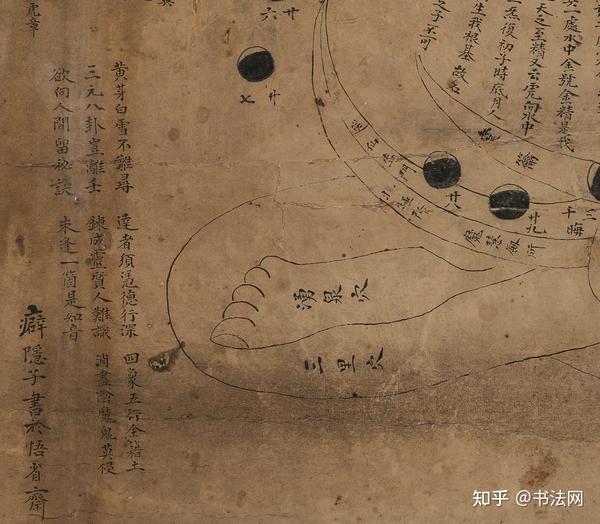 黄芽白雪不難尋 達者須憑德行深 四象五行全藉土
三元八卦豈離壬 鍊成靈質人難識 消盡陰魔鬼莫侵
欲向人間留秘訣 未逢一箇是知音
癖隱子書於悟省齋
湧泉穴
三里穴
虎章
廿六
廿七
廿八
廿九
三十晦
一處水中金號金精是我
天之至精又云虎向水中
無復初子時底月人
生我根基 故名
之子不可
知乎 @书法网